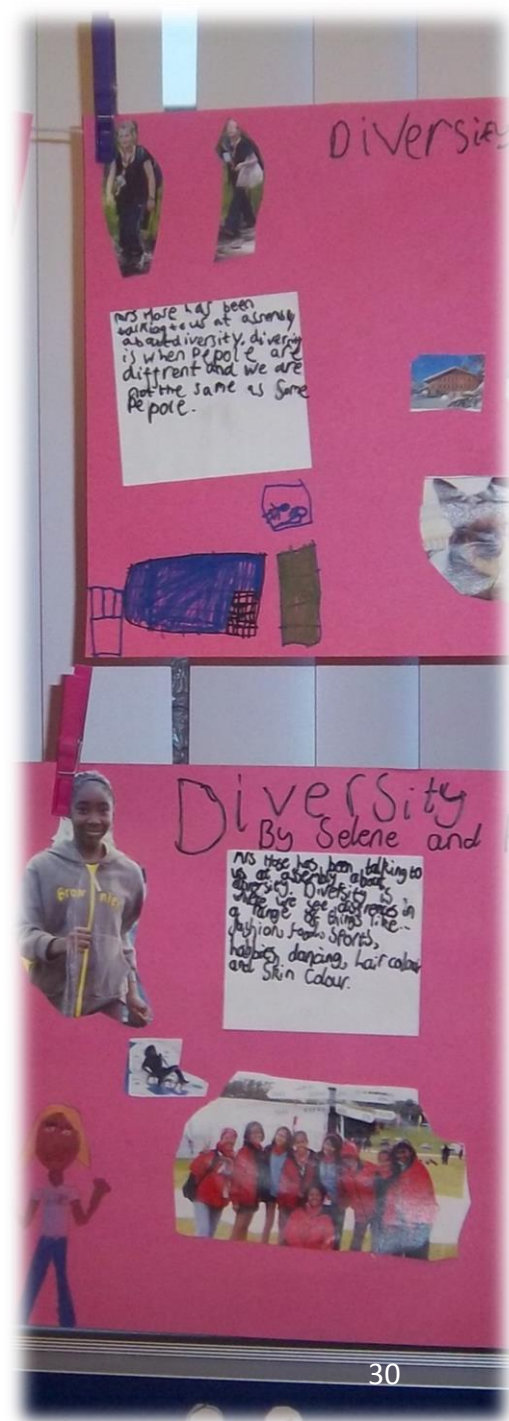 Diversity
Mrs Hose has been
talking to us at assembly
about diversity. diversity
is when Pepole are
diffrent and we are
not the same as Some
Pepole.
Diversity
By Selene and
Mrs Hose has been talking to
us at assembly about
diversity. Diversity is
where we see diffrences in
a range of things like...
fashion, food, Sports,
hobbies, dancing, hair colour
and Skin Colour.
Brownies
30